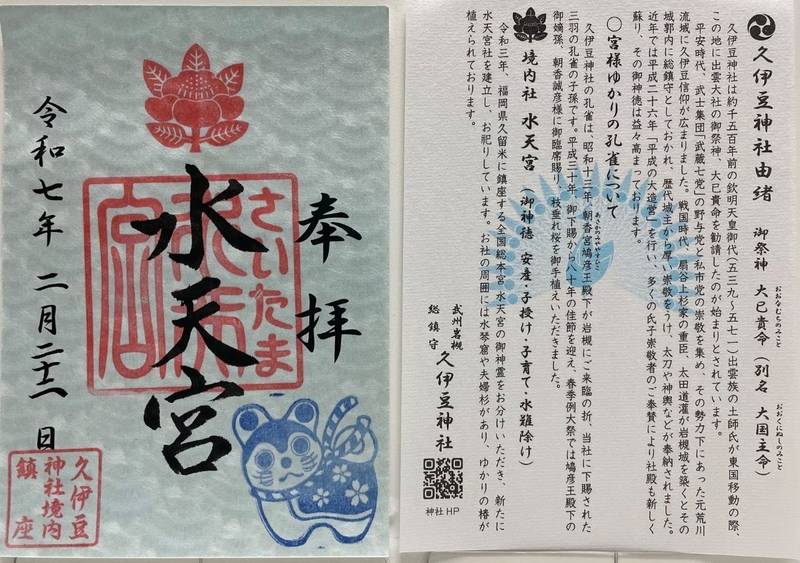 奉拝
さいたま
水天宮
水天宮
令和七年 二月二十二日
久伊豆
神社境内
鎮座
久伊豆神社由緒 御祭神 大己貴命(別名 大国主命)
おおなむちのみこと
おおくにぬしのみこと
久伊豆神社は約千五百年前の欽明天皇御代(五三九~五七一)出雲族の土師氏が東国移動の際、
この地に出雲大社の御祭神、大己貴命を勧請したのが始まりとされています。
平安時代、武士集団「武蔵七党」の野与党と私市党の崇敬を集め、その勢力下にあった元荒川
流域に久伊豆信仰が広まりました。戦国時代、扇谷上杉家の重臣、太田道灌が岩槻城を築くとその
城郭内に総鎮守としておかれ、歴代城主から厚い崇敬をうけ、太刀や神輿などが奉納されました。
近年では平成二十六年「平成の大造営」を行い、多くの氏子崇敬者のご奉賛により社殿も新しく
蘇り、その御神徳は益々高まっております。
〇宮様ゆかりの孔雀について
久伊豆神社の孔雀は、昭和十三年、朝香宮鳩彦王殿下が岩槻にご来臨の折、当社に下賜された
あさかのみややすひこ
三羽の孔雀の子孫です。平成三十年、御下賜から八十年の佳節を迎え、春季例大祭では鳩彦王殿下の
御嫡孫、朝香誠彦様に御臨席賜り、枝垂れ桜を御手植えいただきました。
境内社 水天宮(御神徳 安産・子授け・子育て・水難除け)
令和三年、福岡県久留米に鎮座する全国総本宮 水天宮の御神霊をお分けいただき、新たに
水天宮社を建立し、お祀りしています。お社の周囲には水琴窟や夫婦杉があり、ゆかりの椿が
植えられております。
武州岩槻
総鎮守
久伊豆神社
神社HP